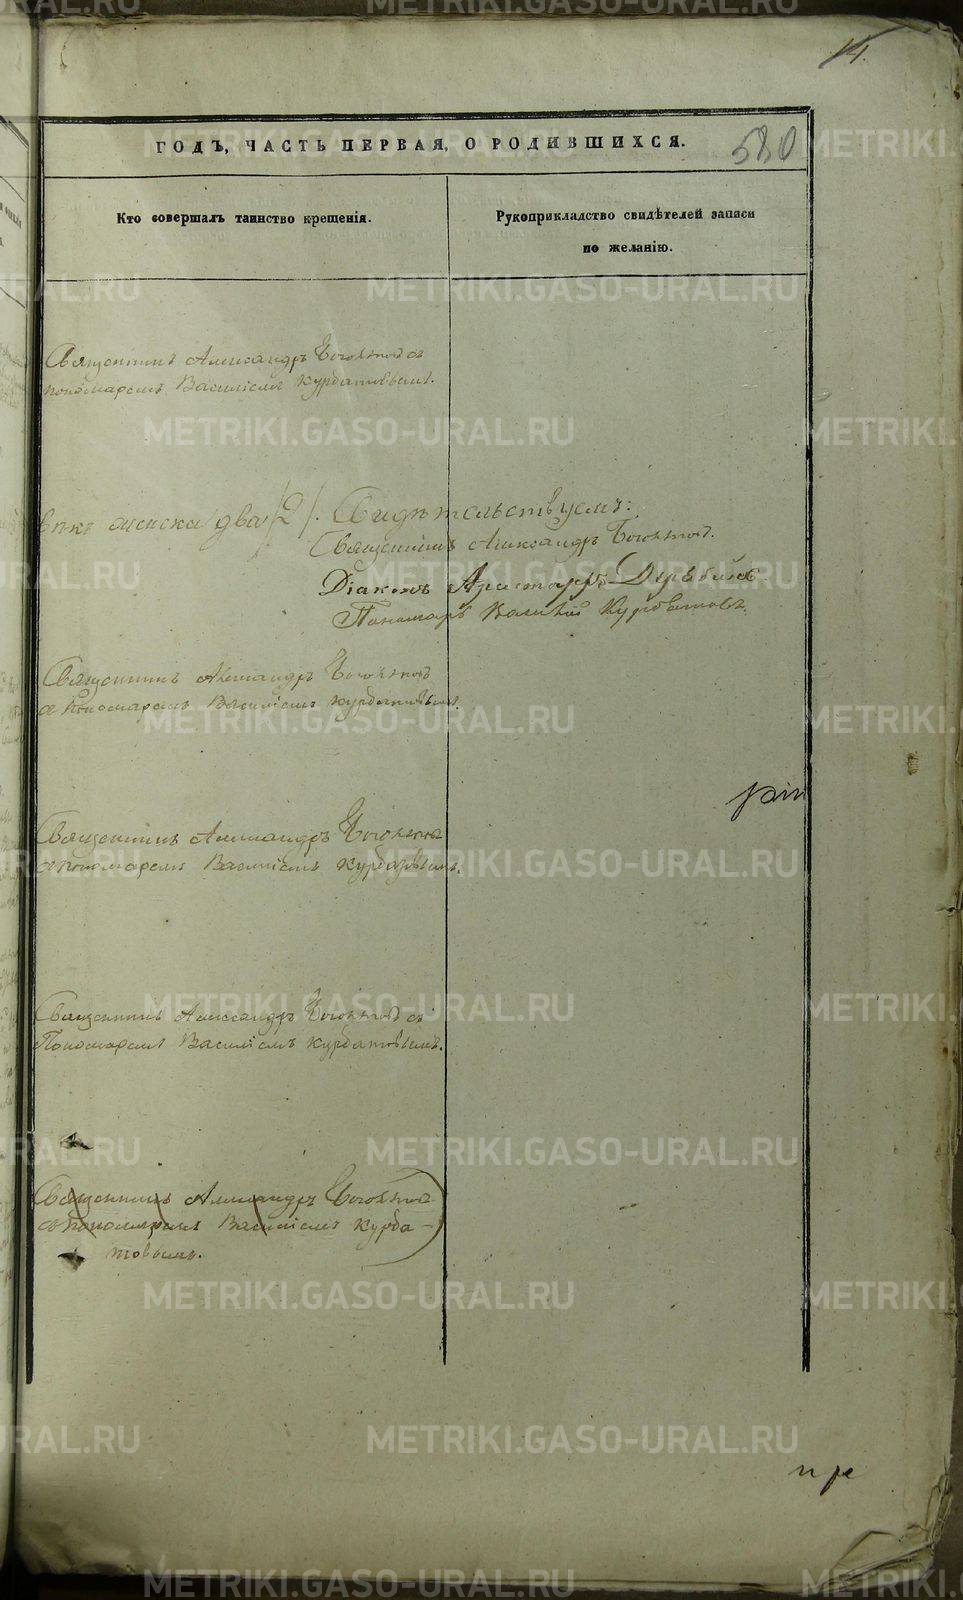 14.
ГОДЪ, ЧАСТЬ ПЕРВАЯ, О РОДИВШИХСЯ.
580
Кто совершалъ таинство крещенія.
Рукоприкладство свидѣтелей записи
по желанію.
Священникъ Александръ съ
пономаремъ Василіемъ Курбатовымъ.
женска два /2/. Свидѣтельствуемъ:
Священникъ Александръ
Діаконъ Аристархъ
Пономарь Василій Курбатовъ.
Священникъ Александръ
съ пономаремъ Василіемъ Курбатовымъ.
Священникъ Александръ
съ пономаремъ Василіемъ Курбатовымъ.
Священникъ Александръ съ
Пономаремъ Василіемъ Курбатовымъ.
Священникъ Александръ
съ пономаремъ Василіемъ Курба-
товымъ.
METRIKI.GASO-URAL.RU